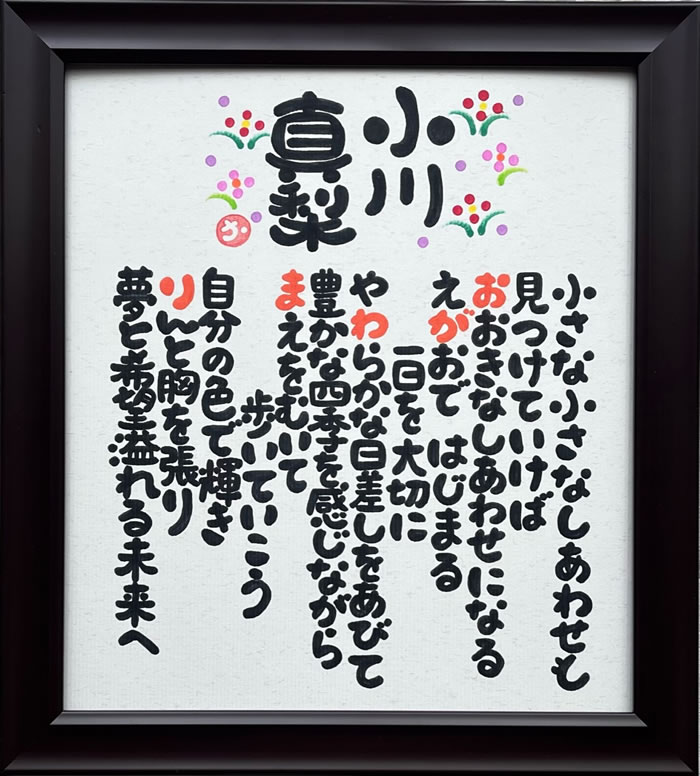 小川
真梨
小さな小さなしあわせも
見つけていけば
おおきなしあわせになる
えがおで はじまる
一日を大切に
やわらかな日差しをあびて
豊かな四季を感じながら
まえをむいて
歩いていこう
自分の色で輝き
りんと胸を張り
夢と希望溢れる未来へ